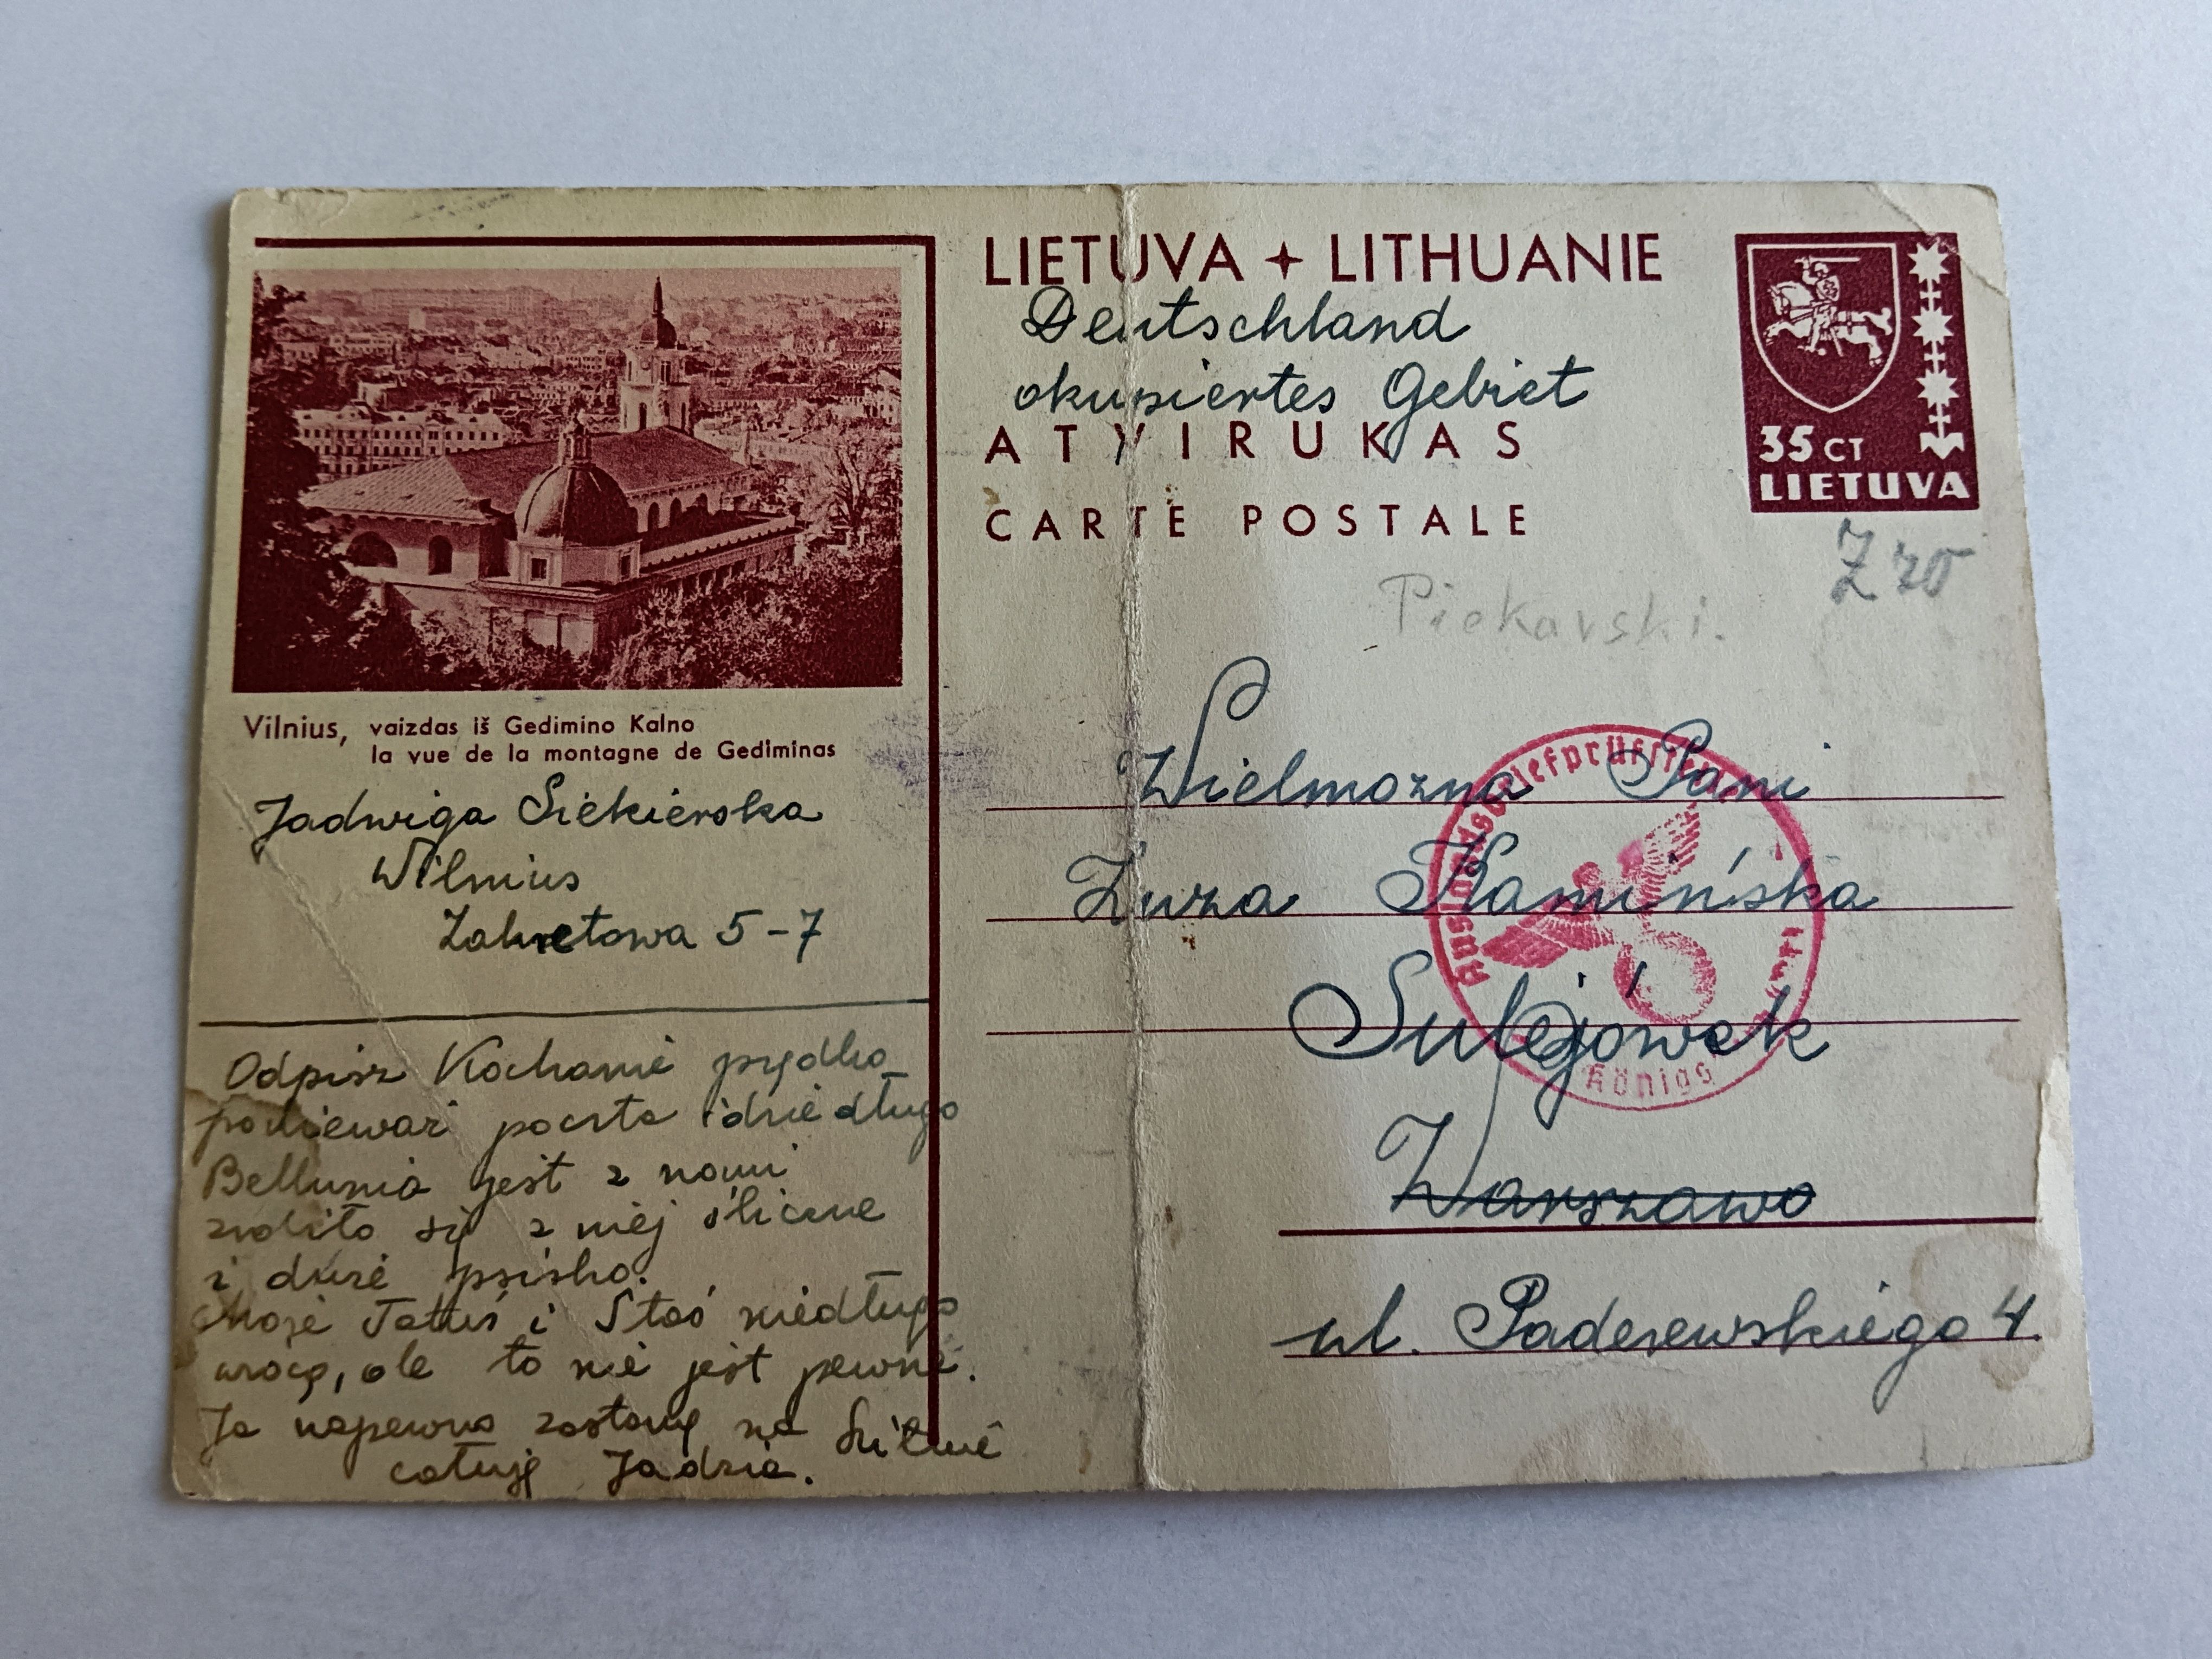 LIETUVA + LITHUANIE
Deutschland
okupiertes Gebiet
ATVIRUKAS
CARTE POSTALE
35 CT
LIETUVA
Piekarski.
Vilnius, vaizdas iš Gedimino Kalno
la vue de la montagne de Gediminas
Jadwiga Siekierska
Wilnius
Zakretowa 5-7
Odpisz Kochanie prędko
ponieważ poczta idzie długo
Bellunia jest z nami
zrobiło się z niej śliczne
i duże psisko.
Może Tatuś i Staś niedługo
wrócą, ale to nie jest pewne.
Ja napewno zostanę na Litwie
całuję Jadzia.
Wielmożna Pani
Zuza Kamińska
Sulejówek
Warszawa
ul. Paderewskiego 4.
Auslandsbriefprüfstelle
Königs